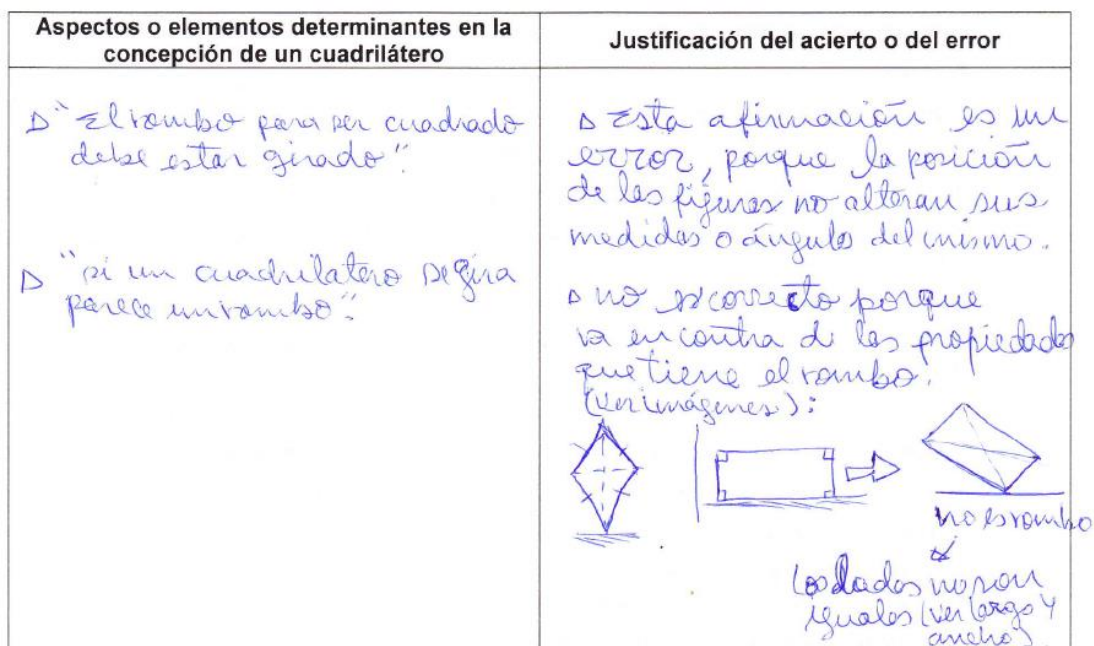 Aspectos o elementos determinantes en la
concepción de un cuadrilátero
Justificación del acierto o del error
"El rombo para ser cuadrado
debe estar girado".
"si un cuadrilatero se gira
parece un rombo".
Esta afirmación es un
error, porque la posición
de las figuras no alteran sus
medidas o ángulo del mismo.
no es correcto porque
va en contra de las propiedades
que tiene el rombo.
(ver imágenes):
no es rombo
Los lados no son
iguales (ver largo y
ancho)